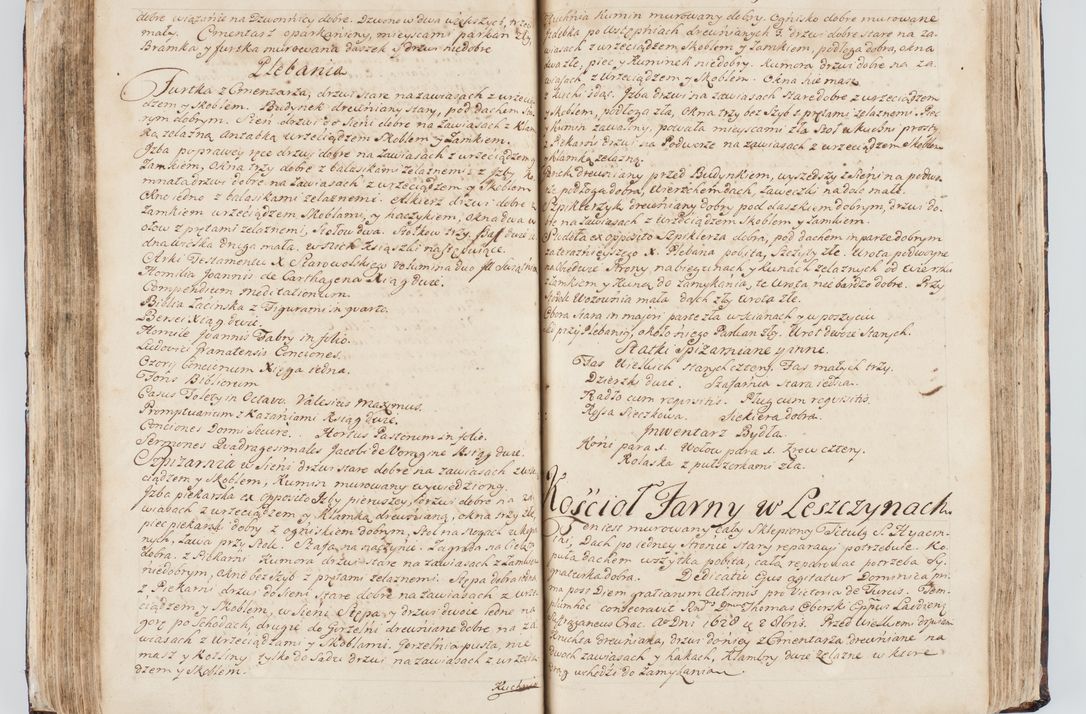 dobre wiązanie na Dzwonnicy dobre. Dzwonow dwa większych, trzeci
mały. Cmentarz oparkaniony, mieyscami parkan zły,
Bramka y furtka murowana daszek y drzwi niedobre
Plebania
Furtka z Cmentarza, drzwi stare na zawiasach z wrzecią-
dzem y Skoblem. Budynek drewniany stary, pod dachem sta-
rym dobrym. Sień drzwi do Sieni dobre na zawiasach z Klam
ką zelazną Antabką wrzeciądzem Skoblem y Zamkiem.
Izba po prawey ręce drzwi dobre na zawiasach z wrzeciądzem y
Zamkiem, Okna trzy dobre z balasikami zelaznemi z Izby Ko
mnata drzwi dobre na zawiasach z wrzeciądzem y Skoblem
Okno iedno z balasikami zelaznemi. Alkierz drzwi dobre z
Zamkiem wrzeciądzem Skoblami, y haczykiem, okna dwa w
ołow z prętami zelaznemi, Stołow dwa. Stołkow trzy,
dna wielka druga mała, w Kiążki następuiące.
Arki Testamentu X Starowolskiego volumina duo
Homilia Joannis de Carthagena Xiąg dwie.
Compendium meditationum.
Biblia Łacińska z Figurami in quarto.
Bensei Xiąg dwie.
Homiliæ Joannis Fabry in folio.
Ludovici Granatensis Conciones.
Ozorij Concionum Xięga iedna.
Fons Bibliorum
Casus Toleti in Octavo. Valerius Maximus.
Promptuarium z Kazaniami Xiąg dwie.
Conciones Dormi Secure. Hortus Pastorum in folio.
Sermones Quadragesimales Jacobi de Voragine Xiąg dwie.
Spizarnia w Sieni drzwi stare dobre na zawiasach z wrze
ciądzem y Skoblem, Kumin murowany wywiedziony.
Izba piekarska ex opposito Izby pierwszey, drzwi dobre na za
wiasach z wrzeciądzem y Klamką drewnianą, okna trzy złe,
piec piekarski dobry z ogniskiem dobrym, Stoł na nogach
nych, Ława przy Stole. Szafa na naczynie. Zagroda na Cielęta
dobra. z Piekarni Kumora drzwi stare na zawiasach z Zamkiem
niedobrym, okno bez szyb z prętami zelaznemi. Stępa dobra
z Piekarni drzwi do Sieni stare dobre na zawiasach z wrze
ciądzem y Skoblem, w Sieni Stępa y drzwi dwoie iedne na
gorę po Schodach, drugie do Gorzelni drewniane dobre na za
wiasach z wrzeciądzami y Skoblami. Gorzelnia pusta, nie
masz y rosliny tylko do Sadu drzwi na zawiasach z wrzecią
dzem y Skoblem.
Kuchnia
Kuchnia Kumin murowany dobry. Ognisko dobre murowane
po Astępniach drewnianych 3. drzwi dobre stare na za
wiasach z wrzeciądzem Skoblem y Zamkiem, podłoga dobra, okna
dwa złe, piec y Kuminek niedobry. Kumora drzwi dobre na za
wiasach z wrzeciądzem y Skoblem. Okna nie masz.
z Kuchni idąc. Izba drzwi na zawiasach stare dobre z wrzeciądzem
y Skoblem, podłoga zła, Okna trzy bez Szyb z prętami zelaznemi. Piec
y Kumin zawalny, powała mieyscami zła Stoł w Kuchni prosty
z Piekarni drzwi na Podworze na zawiasach z wrzeciądzem Skoblem
y Klamką zelazną.
Ganek drewniany przed Budynkiem, wyszedszy z Sieni na podwo
rze podłoga dobra, Wierzchem dach, Ławeczki nadole małe.
Szpiklerzyk drewniany dobry pod daszkiem dobrym, drzwi do
bre na zawiasach z wrzeciądzem Skoblem y Zamkiem.
Stodoła ex opposito Szpiklerza dobra, pod dachem in parte dobrym
za teraznieyszego X. Plebana pobitą, Szczyty złe. Wrota podwoyne
na obiedwie Strony, na biegunach y Kunach zelaznych od wierzchu
Zamkiem y Kuną do zamykania, te wrota niebardzo dobre. Przy
Stodole Wozownia mała dach zły wrota złe.
Obora Stara in majori parte zła w scianach y w poszyciu
przy Plebanij, około niego Parkan zły. Wrot dwoie Starych.
Statki Spizarniane y inne.
Fas Wielkich Starych cztery, Fas małych trzy.
Dzierzki dwie. Szafarnia Stara iedna.
Radło cum requisitis. Pług cum requisitis.
Kosa Sieczkowa. Siekiera dobra.
Inwentarz Bydła.
Koni para 1. Wołow para 1. Krow cztery.
Kolaska z puszorkami zła.
Kosciol Farny w Leszczynach.
Ten iest murowany cały Sklepiony Tituly S. Hyacin-
thi, Dach po iedney Stronie Stary reparaij potrzebuie. Ko
puła dachem wszytka pobita, całą reparować potrzeba Sy-
gnaturka dobra. Dedicatio Ejus agitatur Dominica pri
ma post Diem gratiarum Actionis pro Victoria de Turcis. Tem
plum hoc consecravit Rndssmus Dmnus Thomas Oborski Eppus Laodicen
Suffraganeus Crac. Ao Dni 1628 8 Obris. Przed Wielkiemi drzwiami
Kruchta drewniana, drzwi do niey z Cmentarza drewniane na
dwoch zawiasach y hakach, Klambry dwie zelazne w ktore
drąg wchodzi do zamykania.